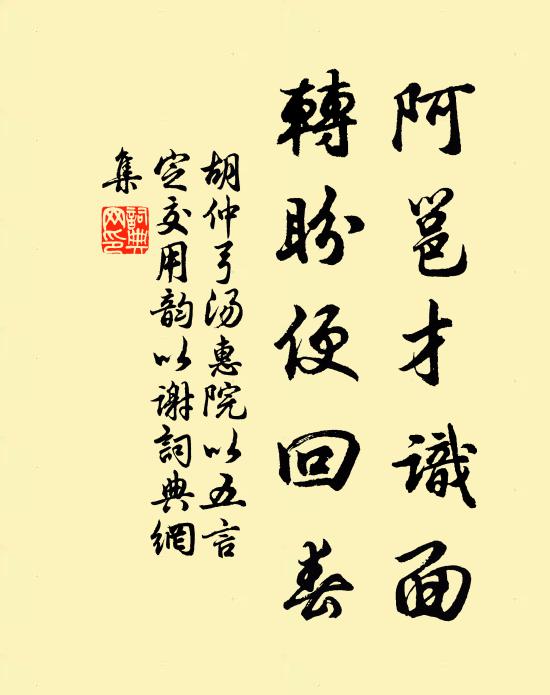 阿邕才識面
轉盼便回春
胡仲弓汤惠院以五言
定交用韵以谢詞典網
集
詞典網印